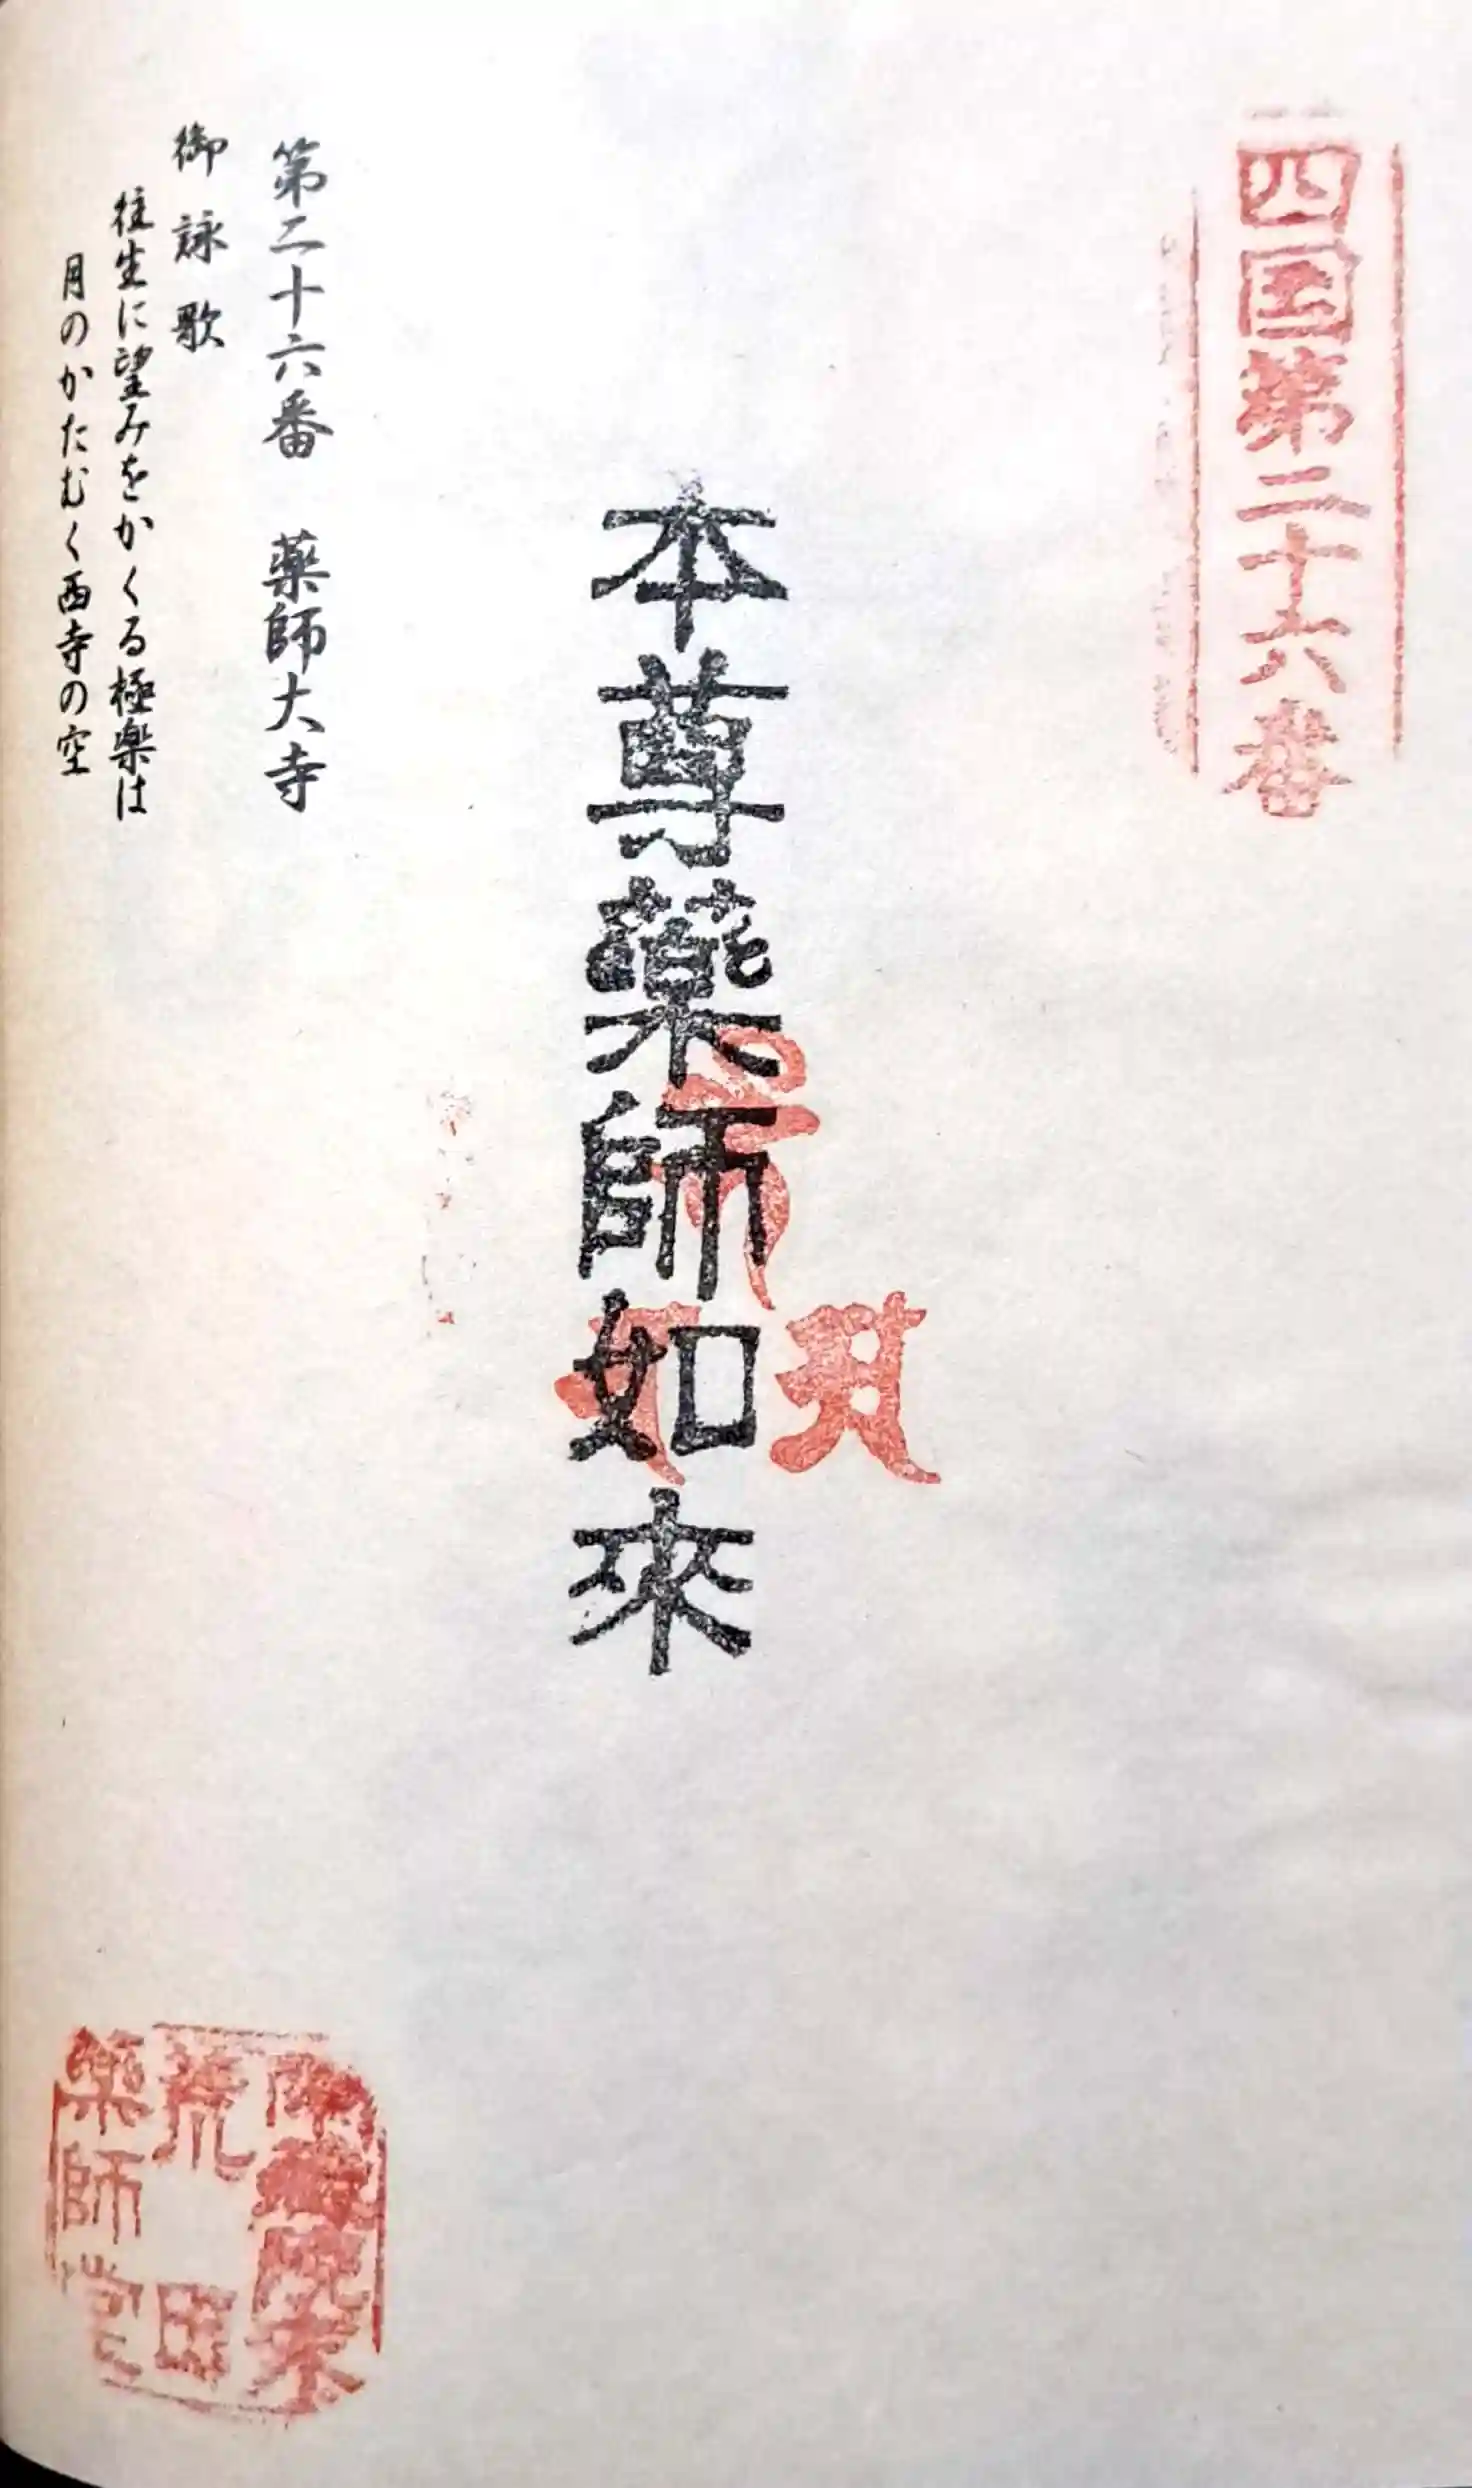 四国第二十六番
本尊薬師如來
第二十六番　薬師大寺
御詠歌
往生に望みをかくる極楽は
月のかたむく西寺の空
薬師堂